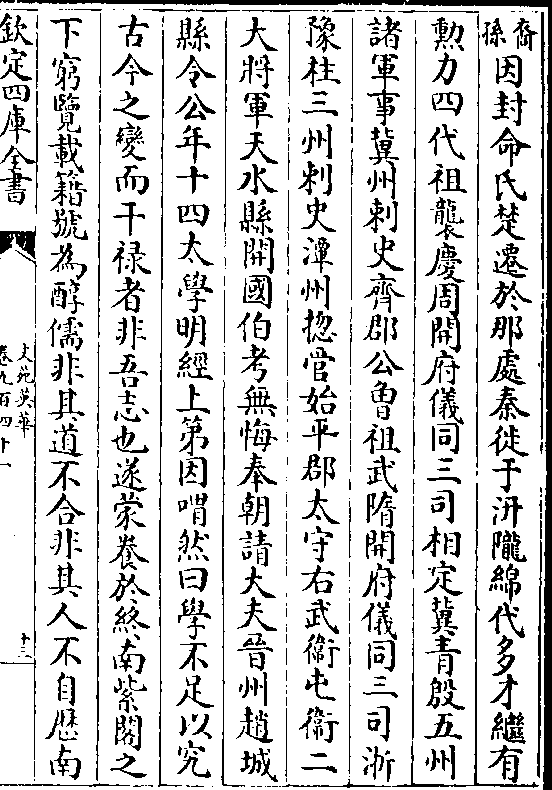 裔孫因封命氏楚遷於那處秦徙于汧隴綿代多才繼有
勲力四代祖襲慶周開府儀同三司相定冀青殷五州
諸軍事冀州刺史齊郡公曽祖武隋開府儀同三司浙
豫柱三州刺史潭州揔管始平郡太守右武衞屯衞二
大將軍天水縣開國伯考無悔奉朝請大夫晉州趙城
縣令公年十四太學明經上第因喟然曰學不足以究
古今之變而干禄者非吾志也遂蒙養於終南紫閣之
下窮覽載籍號為醇儒非其道不合非其人不自歴南
欽定四庫全書
文苑英華
卷九百四十一
十三